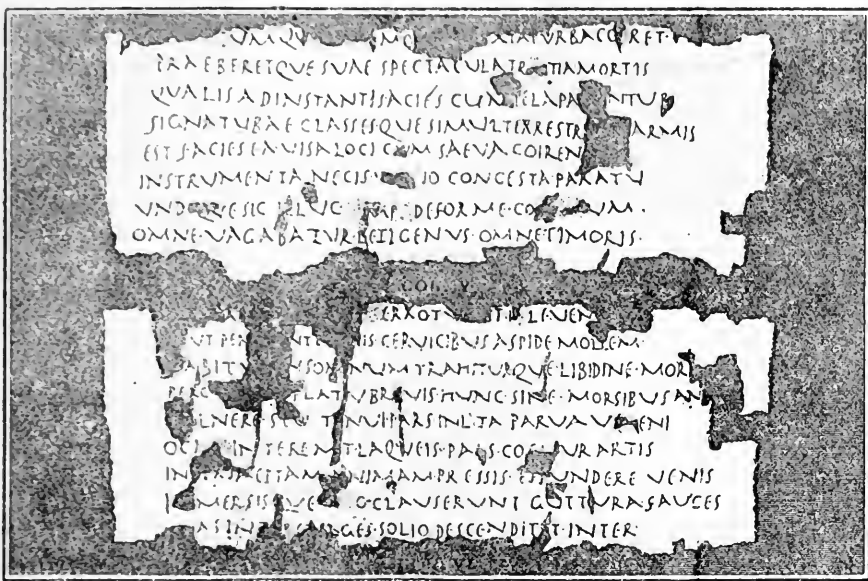 TURBA CO RET
PRAEBERETQUE SUAE SPECTACULA TR TIA MORTIS
QUALIS AD INSTANTIS ACIES CUM TELA PA NTUR
SIGNA TUBAE CLASSESQUE SIMUL TERRESTR ARMIS
EST FACIES EA VISA LOCI CUM SAEVA COIREN
INSTRUMENTA NECIS IO CONGESTA PARATU
UND QUE SIC ILLUC DEFORME CO UM·
OMNE·VAGABATUR·LETI GENUS·OMNE TIMORIS·
COL V
FERRO TU LE VEN
UT PEN NTE IS CERVICIBUS ASPIDE MOLLEM·
LABIT N SOM NUM TRAHITURQUE·LIBIDINE·MOR
PERC LAT BREVIS·HUNC·SINE·MORSIBUS AN
OLNERE·SEU TENUI PARS INLITA PARVA VE ENI
OCI INTEREM T·LAQUEIS·PARS·CO UR ARTIS
IN CITAM NIMAM·PRESSIS·E UNDERE VENIS
I MERSIS VE O CLAUSERUNT GUTTURA·FAUCES
AS INT AGES·SOLIO DESCENDIT ET·INTER·